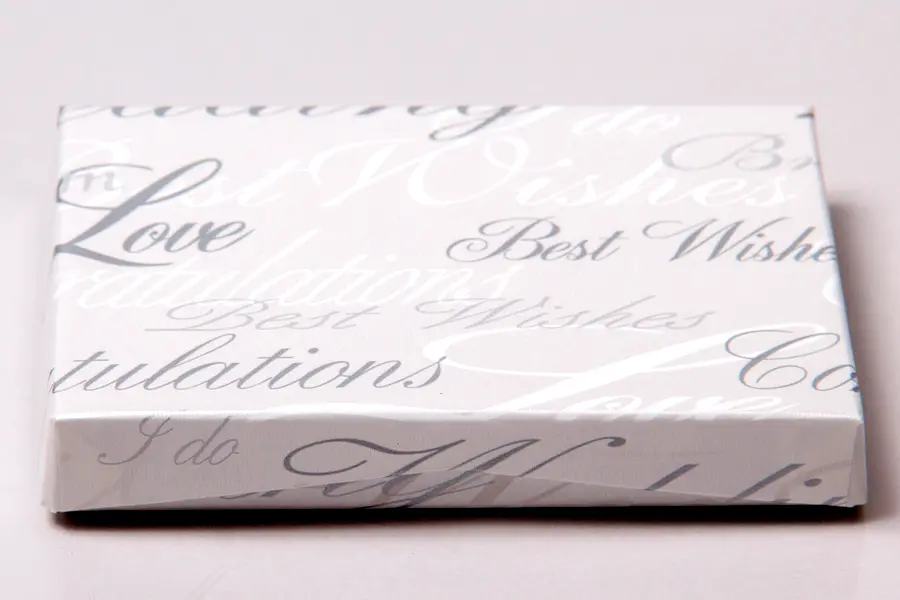 do
Best Wishes
Love
Best Wishe
ratulations
Best Wishes
tulations
Love
Co
I do